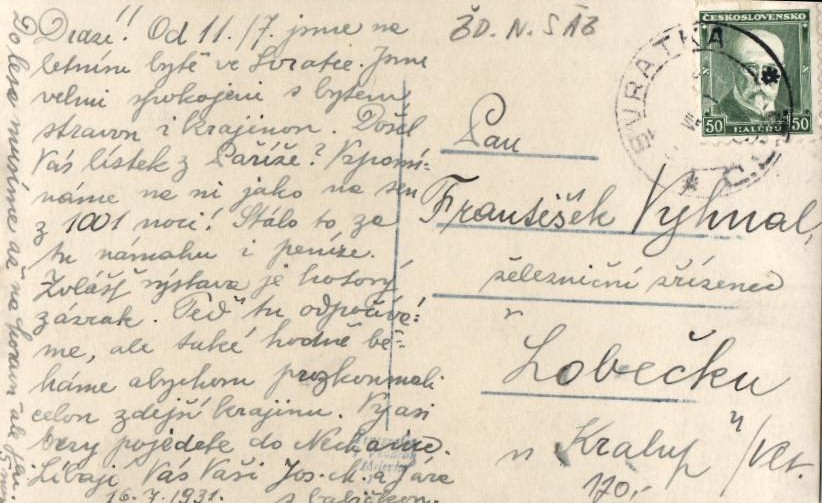 Drazí! Od 11./7. jsme na
letním bytě ve Svratce. Jsme
velmi spokojeni s bytem
stravou i krajinou. Došel
Vás lístek z Paříže? Vzpomí-
náme na ni jako na sen
z 1001 noci! Stálo to za
tu námahu i peníze.
Zvlášť výstava je hotový
zázrak. Teď tu odpočívá-
me, ale také hodně bě-
háme abychom prozkoumali
celou zdejší krajinu. Vy asi
brzy pojedete do Nechanic.
Líbají Vás Vaši Jos. M. a Jára
16.7.1931. s babičkou.
Do lesa musíme až na horu ale jsou
ŽD. N. SÁZ
ČESKOSLOVENSKO
50 HALÉŘŮ 50
SVRATKA
Pan
Františšek Vyhnal,
železniční zřízenec
v Lobečku
n Kralup n/Vlt.
170,-